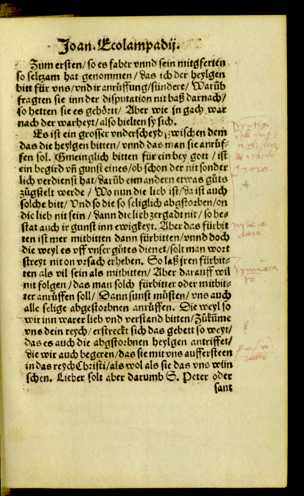 Joan. Ecolampadij.
Zum ersten/ so es faber vnnd sein mitgferten
so seltzam hat genommen/ das ich der heylgen
bitt für vns/ vnd ir anrüffung/ sündere/ Warüb
fragten sie inn der disputation nit baß darnach/
so hetten sie es gehört/ Aber wie in gach war
nach der warheyt/ also hielten sy sich.
Es ist ein grosser vnderscheyd/ zwischen dem
das die heylgen bitten/ vnnd das man sie anrüf-
fen sol. Gmeinglich bitten für ein bey got/ ist
ein begird vñ gunst eines/ ob schon der nit sonder
lich verdienst hat/ darüb eim andern etwas güts
zügstelt werde/ Wo nun die lieb ist/ da ist auch
solche bitt/ Vnd so die so seliglich abgstorben/ on
die lieb nit sein/ dann die lieb zergadt nit/ so be-
stat auch ir gunst inn ewigkeyt. Aber das fürbit
ten ist mer mitbitten dann fürbitten/ vnnd doch
die weyl es vff vnser gütes dienet/ solt man wort
streyt nit on vrsach erheben. So laß jren fürbit-
ten als vil sein als mitbitten/ Aber darauff wil
nit folgen/ das man solch fürbitter oder mitbit-
ter anrüffen soll/ Dann sunst müsten/ vns auch
alle selige abgestorbnen anrüffen. Die weyl so
wir inn warer lieb vnd verstand bitten/ Züküme
vns dein reych/ erstreckt sich das gebett so weyt/
das es auch die abgstorbnen heylgen antriffet/
die wir auch begeren/ das sie mit vns aufferstee
in das reych Christi/ als wol als sie das vns wün
schen. Lieber solt aber darumb S. Peter oder
sant